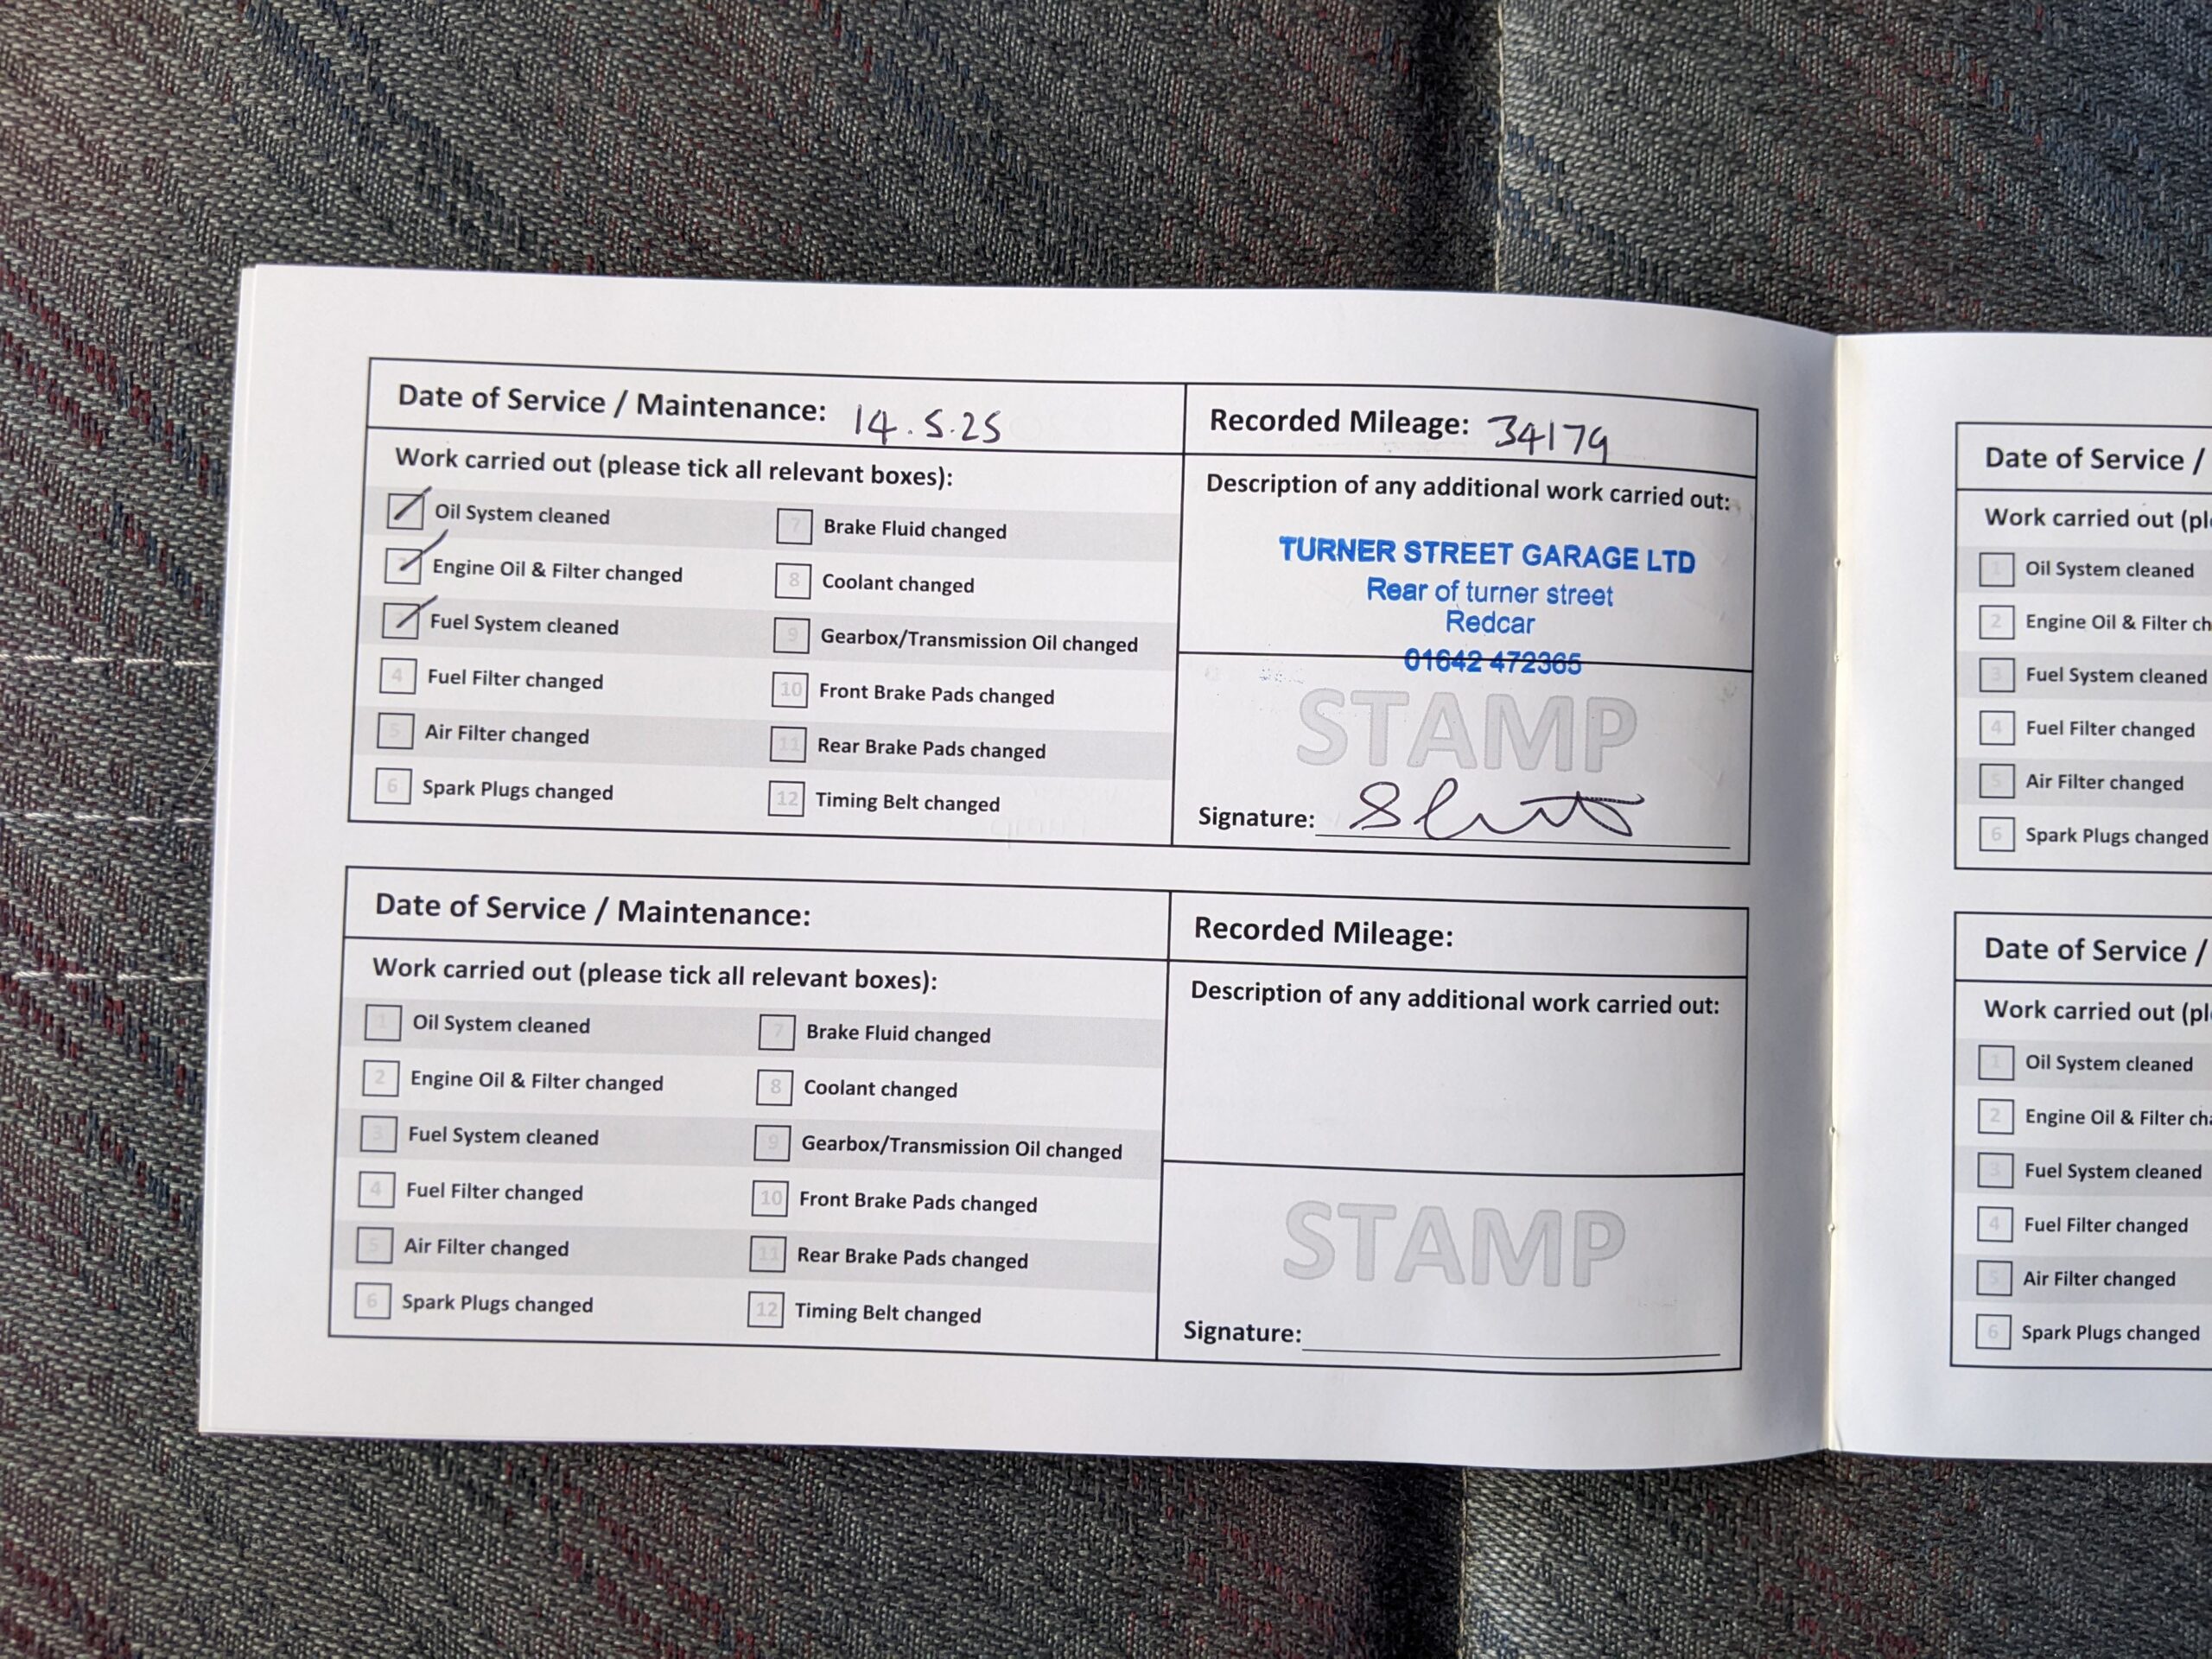 Date of Service / Maintenance: 14.5.25
Recorded Mileage: 34179
Work carried out (please tick all relevant boxes):
Oil System cleaned
Engine Oil & Filter changed
Fuel System cleaned
4 Fuel Filter changed
5 Air Filter changed
6 Spark Plugs changed
7 Brake Fluid changed
8 Coolant changed
9 Gearbox/Transmission Oil changed
10 Front Brake Pads changed
11 Rear Brake Pads changed
12 Timing Belt changed
Description of any additional work carried out:
TURNER STREET GARAGE LTD
Rear of turner street
Redcar
01642 472365
STAMP
Signature:
Date of Service / Maintenance:
Recorded Mileage:
Work carried out (please tick all relevant boxes):
1 Oil System cleaned
2 Engine Oil & Filter changed
3 Fuel System cleaned
4 Fuel Filter changed
5 Air Filter changed
6 Spark Plugs changed
7 Brake Fluid changed
8 Coolant changed
9 Gearbox/Transmission Oil changed
10 Front Brake Pads changed
11 Rear Brake Pads changed
12 Timing Belt changed
Description of any additional work carried out:
STAMP
Signature:
Date of Service /
Work carried out (pl
1 Oil System cleaned
2 Engine Oil & Filter ch
3 Fuel System cleaned
4 Fuel Filter changed
5 Air Filter changed
6 Spark Plugs changed
Date of Service /
Work carried out (pl
1 Oil System cleaned
2 Engine Oil & Filter cha
3 Fuel System cleaned
4 Fuel Filter changed
5 Air Filter changed
6 Spark Plugs changed